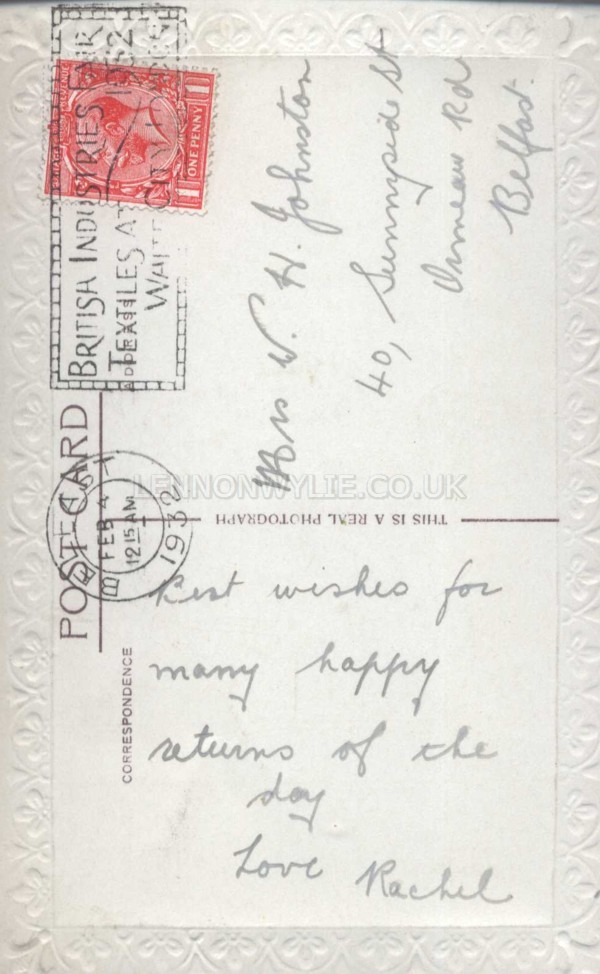 POST-CARD
BRITISH INDUSTRIES FAIR
TEXTILES AT
WHITE CITY
1932
ONE PENNY
1
ADDRESS
BELFAST
FEB 4
12 15 AM
1932
CORRESPONDENCE
THIS IS A REAL PHOTOGRAPH
Mrs W. H. Johnston
40, Sunnyside St
Ormeau Rd
Belfast.
Best wishes for
many happy
returns of the
day
Love
Rachel
LENNONWYLIE.CO.UK